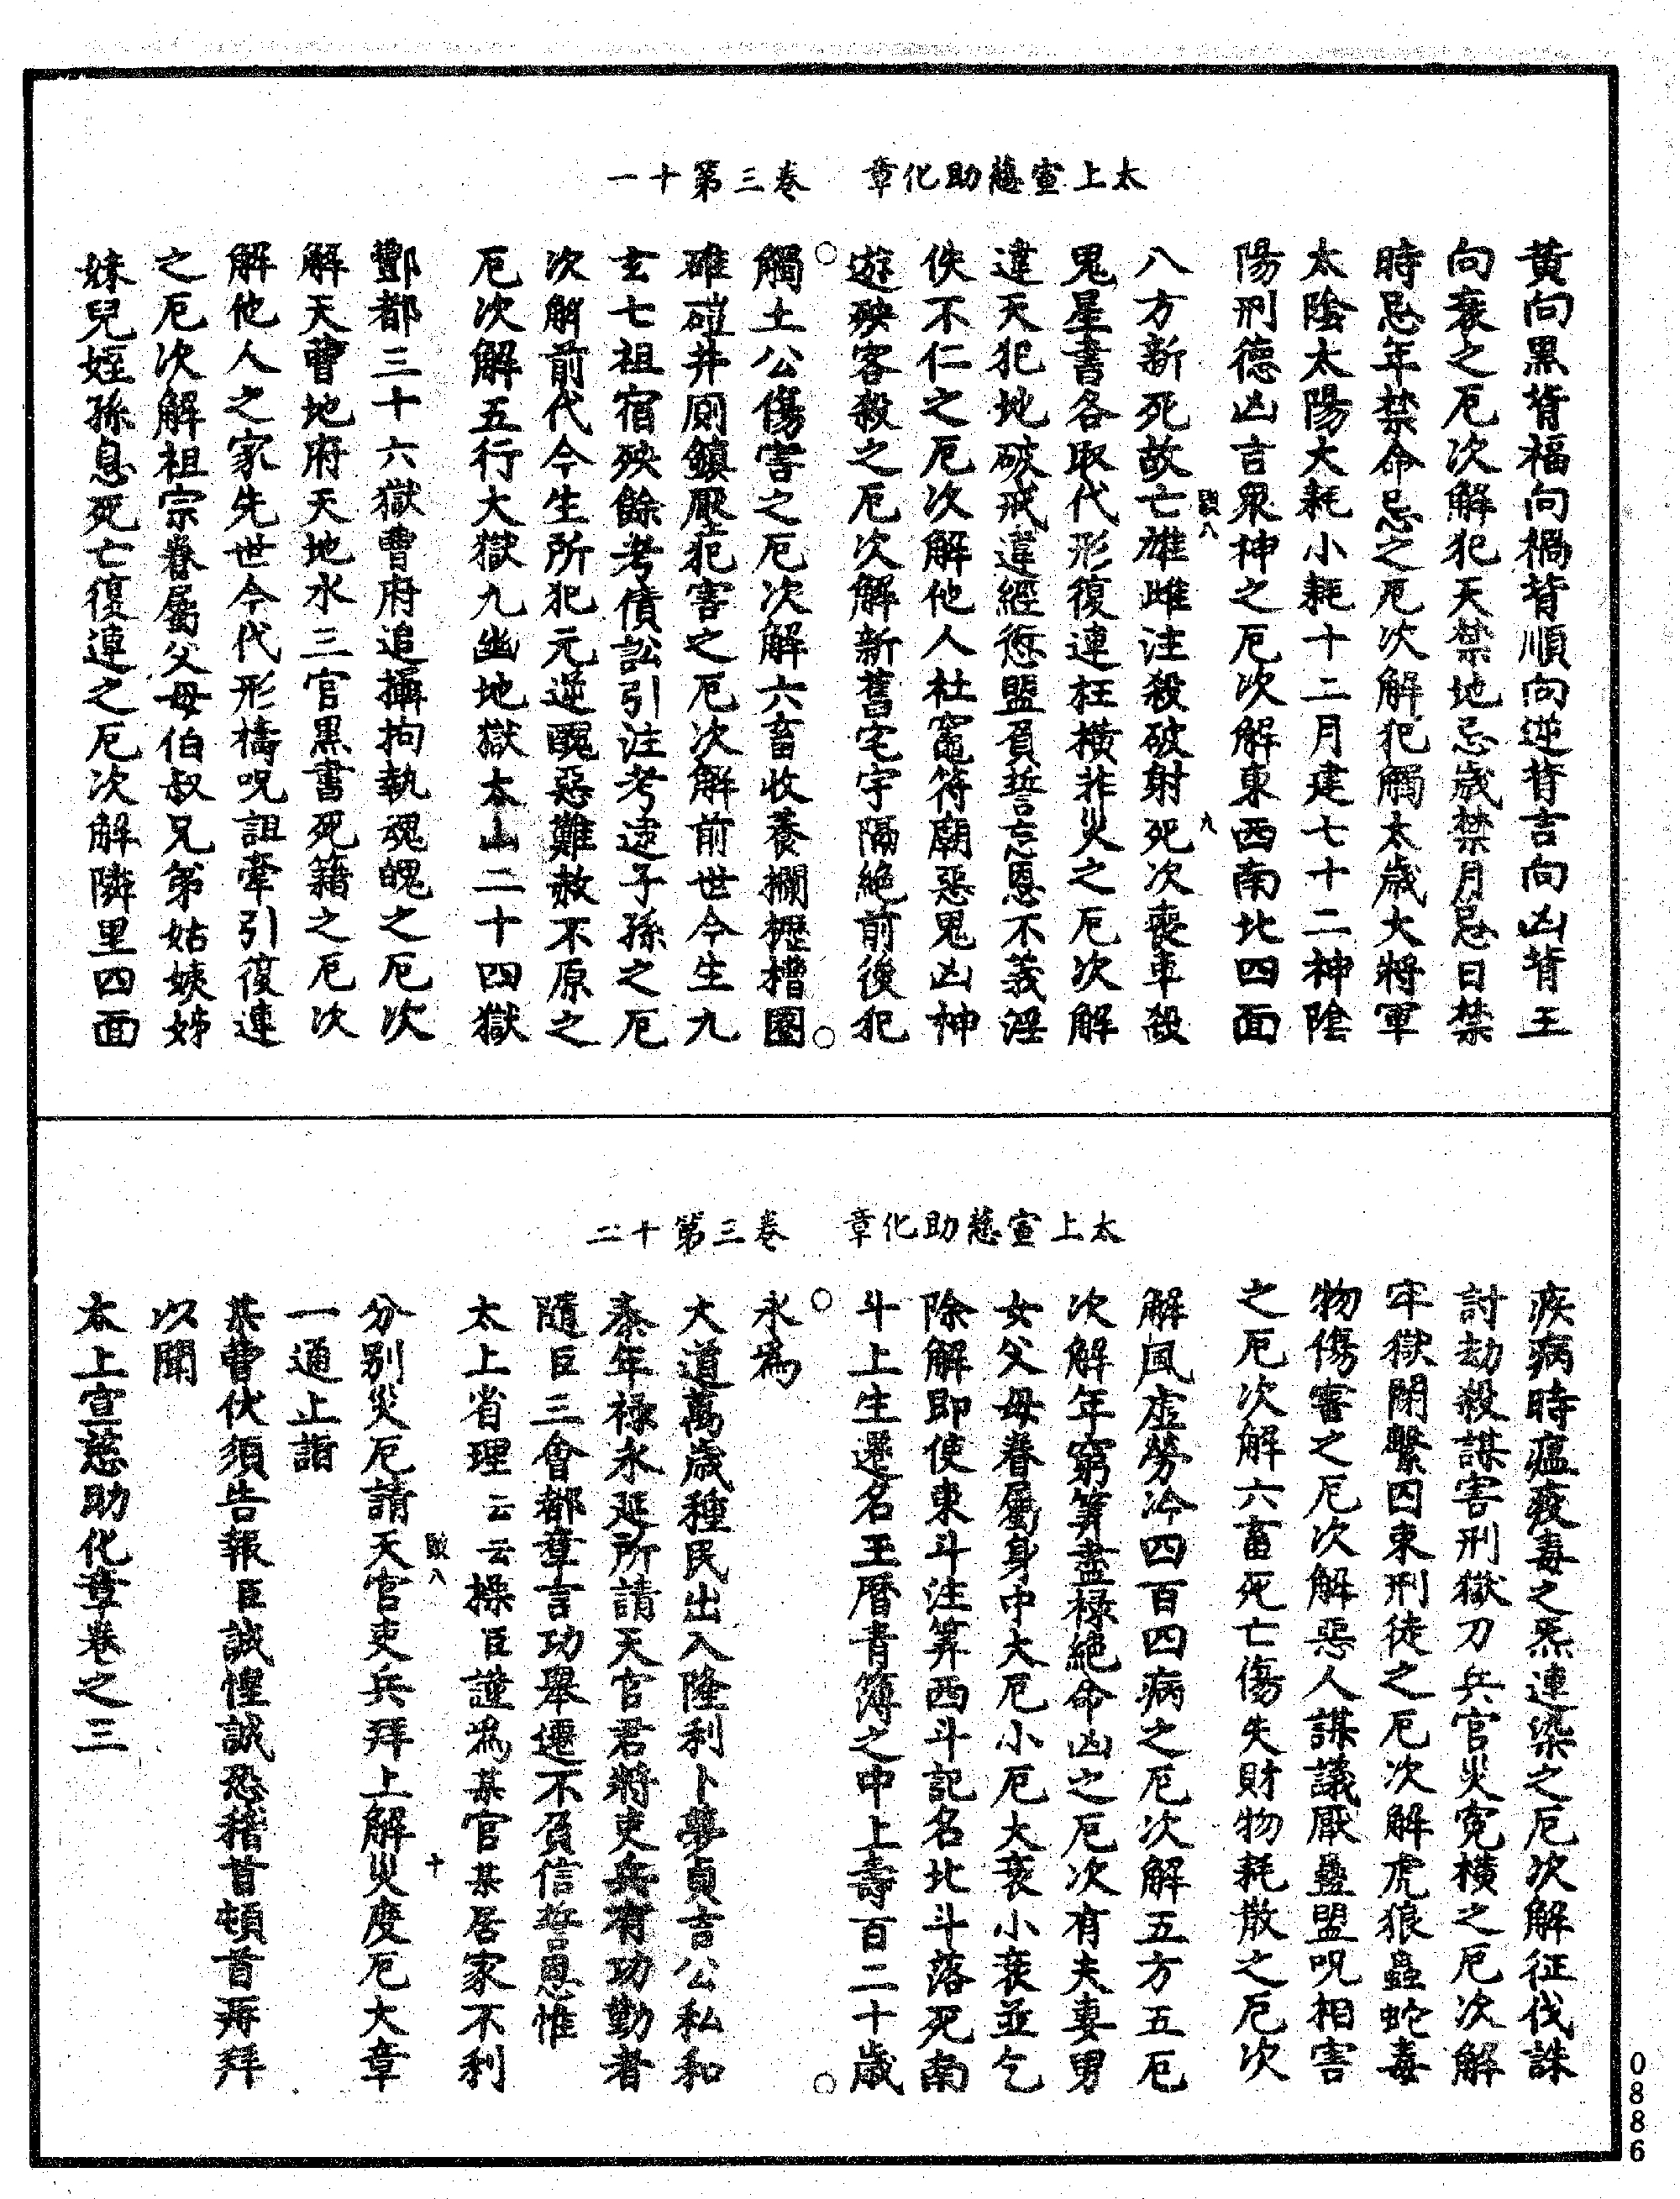 太上宣慈助化章　卷三第十一
黃向黑背福向禍背順向逆背吉向凶背王
向衰之厄次解犯天禁地忌歲禁月忌日禁
時忌年禁命忌之厄次解犯觸太歲大將軍
太陰太陽大耗小耗十二月建七十二神陰
陽刑德凶吉衆神之厄次解東西南北四面
八方新死故亡雄雌注殺破射死次喪車殺
鬼星書各取代形復連枉橫非災之厄次解
違天犯地破戒違經愆盟負誓忘恩不義淫
佚不仁之厄次解他人社竈符廟惡鬼凶神
遊殃客殺之厄次解新舊宅宇隔絶前後犯
觸土公傷害之厄次解六畜收養攔櫪槽圈
碓磑井廁鎮壓犯害之厄次解前世今生九
玄七祖宿殃餘考債訟引注考逮子孫之厄
次解前代今生所犯元逆醜惡難赦不原之
厄次解五行大獄九幽地獄太山二十四獄
酆都三十六獄曹府追攝拘執魂魄之厄次
解天曹地府天地水三官黑書死籍之厄次
解他人之家先世今代形檮呪詛牽引復連
之厄次解祖宗眷屬父母伯叔兄弟姑姨姊
妹兒姪孫息死亡復連之厄次解隣里四面
八
九
太上宣慈助化章　卷三第十二
疾病時瘟疫毒之炁連染之厄次解征伐誅
討劫殺謀害刑獄刀兵官災寃橫之厄次解
牢獄閉繫囚束刑徒之厄次解虎狼蟲蛇毒
物傷害之厄次解惡人謀議厭蠱盟呪相害
之厄次解六畜死亡傷失財物耗散之厄次
解風虛勞冷四百四病之厄次解五方五厄
次解年窮筭盡祿絶命凶之厄次有夫妻男
女父母眷屬身中大厄小厄大衰小衰並乞
除解即使東斗注筭西斗記名北斗落死南
斗上生還名玉曆青簿之中上壽百二十歲
永爲
大道萬歲種民出入隆利卜夢貞吉公私和
泰年祿永延所請天官君將吏兵有功勤者
隨臣三會都章言功舉遷不負信誓恩惟
太上省理云云操臣謹爲某官某居家不利
分別災厄請天官吏兵拜上解災度厄大章
一通止詣
某曹伏須告報臣誠惶誠恐稽首頓首再拜
以聞
太上宣慈助化章卷之三
八
十
0886